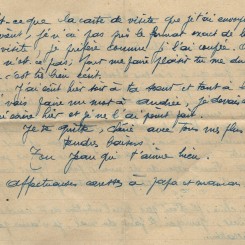 Est-ce que la carte de visite que je t'ai envoyé
je n'ai pas pris le format exact de la
visite, je préfère comme je l'ai coupée.
n'est-ce pas, pour me faire plaisir tu me di
c'est très bien écrit.
J'ai écrit hier soir à ta sœur et tout à l
vais faire un mot à Andrée, je devais
écrire hier et je ne l'ai point fait.
Je te quitte, chérie avec tous mes plus
tendres baisers.
Ton Jean qui t'aime bien.
affectueuses caresses à papa et maman